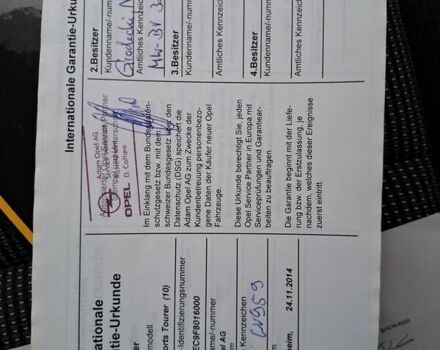 Internationale Garantie-Urkunde
nationale
ntie-Urkunde
er
modell
orts Tourer (10)
-Identifizierungsnummer
EC9F8016000
name/-nummer
el AG
m
s Kennzeichen
GV959
m
heim, 24.11.2014
Adam Opel AG
OPEL D. Cofano
Im Einklang mit dem Bundesdaten-
schutzgesetz bzw. mit dem
schweizer Bundesgesetz über den
Datenschutz (DSG) speichert die
Adam Opel AG zum Zwecke der
Kundenbetreuung personenbezo-
gene Daten der Käufer neuer Opel
Fahrzeuge.
Diese Urkunde berechtigt Sie, jeden
Opel Service Partner in Europa mit
Serviceprüfungen und Garantiear-
beiten zu beauftragen.
Die Garantie beginnt mit der Liefe-
rung bzw. der Erstzulassung, je
nachdem, welches dieser Ereignisse
zuerst eintritt.
2.Besitzer
Kundenname/-num
Amtliches Kennzei
3.Besitzer
Kundenname/-num
Amtliches Kennzeic
4.Besitzer
Kundenname/-num
Amtliches Kennzeic